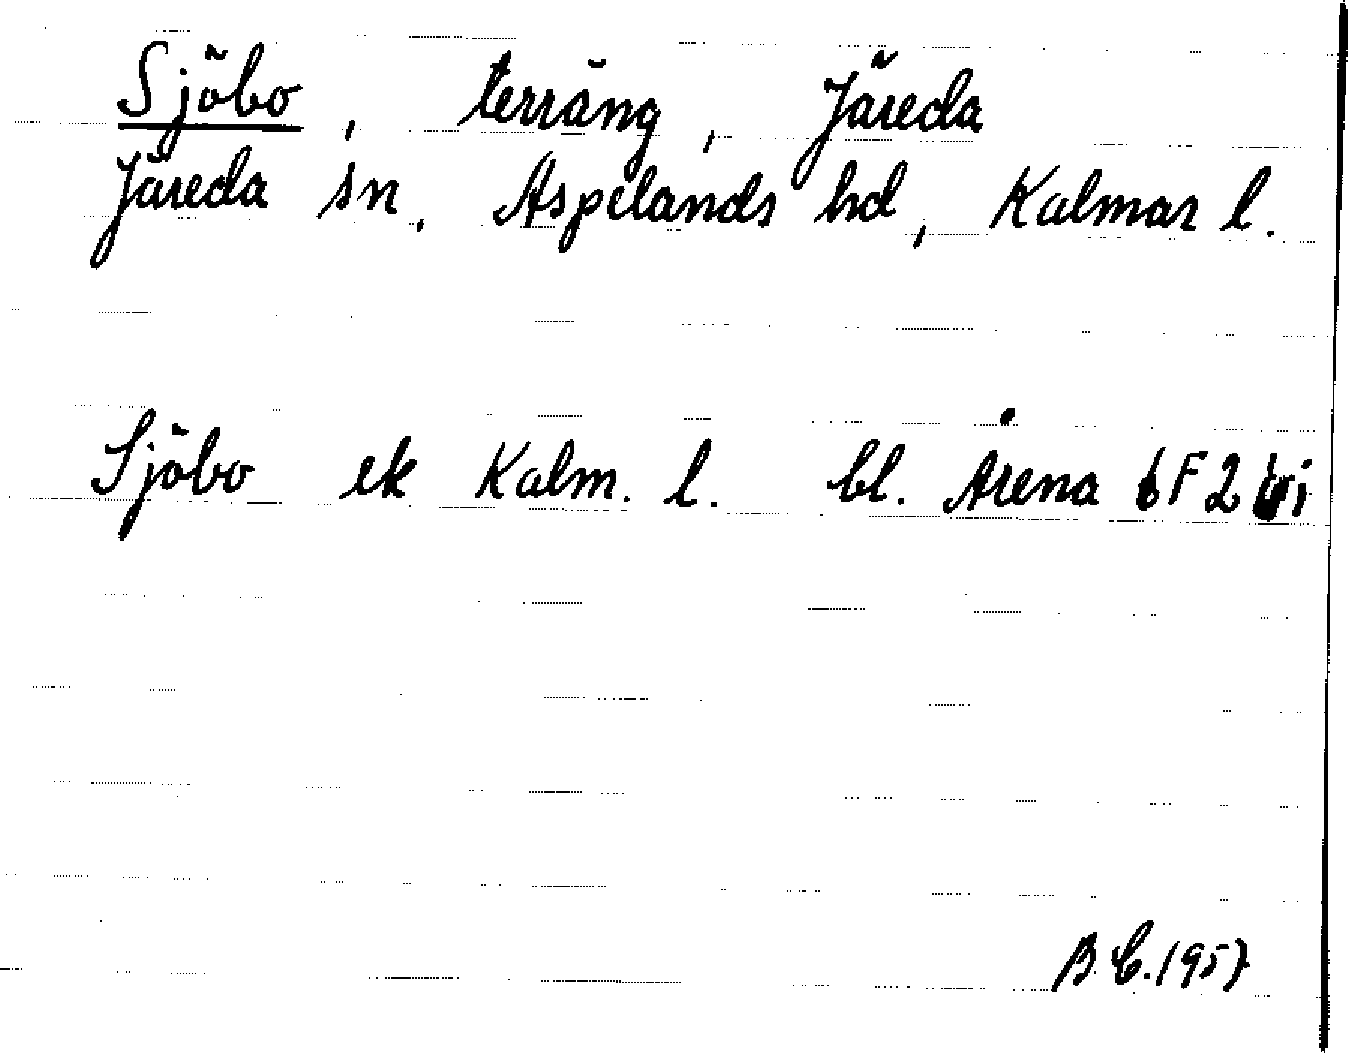 Sjöbo, terräng, Järeda
Järeda sn, Aspelands hd, Kalmar l.
Sjöbo ek Kalm. l. bl. Årena 6F2 i
B.C. 1957